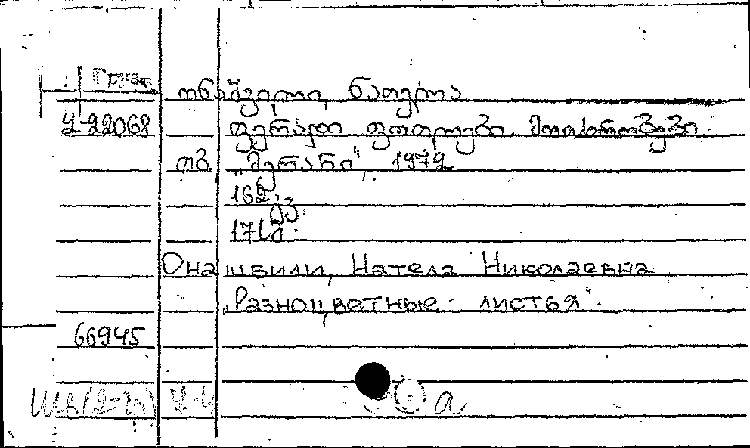 Груз.
ონაშვილი, ნათელა
ყ-22068
ფერადი ფოთლები. მოთხრობები.
თბ. „მერანი“, 1972
162 გვ.
17 სმ.
Онашвили, Нателла Николаевна
„Разноцветные листья“.
66945
а